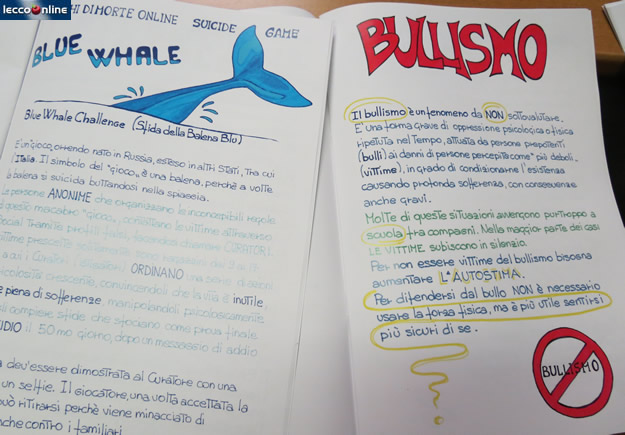 leccoonline
HI DI MORTE ONLINE SUICIDE GAME
BLUE WHALE
Blue Whale Challenge (Sfida della Balena Blu)
È un gioco, orrendo nato in Russia, esteso in altri Stati, tra cui
l'Italia. Il simbolo del "gioco" è una balena, perchè a volte
la balena si suicida buttandosi nella spiaggia.
Le persone ANONIME che organizzano le inconcepibili regole
questo macabro "gioco", contattano le vittime attraverso
social tramite profili
vittime prescelte
ORDINANO una serie di azioni
pericolosità crescente, convincendoli che la vita è inutile
e piena di sofferenze manipolandoli psicologicamente
compiere sfide che sfociano come prova finale
il 50 mo giorno, dopo un messaggio di addio
dev'essere dimostrata al Curatore con una
un selfie. Il giocatore, una volta accettata la
può ritirarsi perchè viene minacciato di
anche contro i familiari.
BULLISMO
Il bullismo è un fenomeno da NON sottovalutare.
È una forma grave di oppressione psicologica o fisica
ripetuta nel tempo, attuata da persone prepotenti
(bulli) ai danni di persone percepite come "più deboli"
(vittime), in grado di condizionarne l'esistenza
causando profonda sofferenza, con conseguenze
anche gravi.
Molte di queste situazioni avvengono purtroppo a
scuola tra compagni. Nella maggior parte dei casi
LE VITTIME subiscono in silenzio.
Per non essere vittime del bullismo bisogna
aumentare L'AUTOSTIMA.
Per difendersi dal bullo NON è necessario
usare la forza fisica, ma è più utile sentirsi
più sicuri di se.
BULLISMO